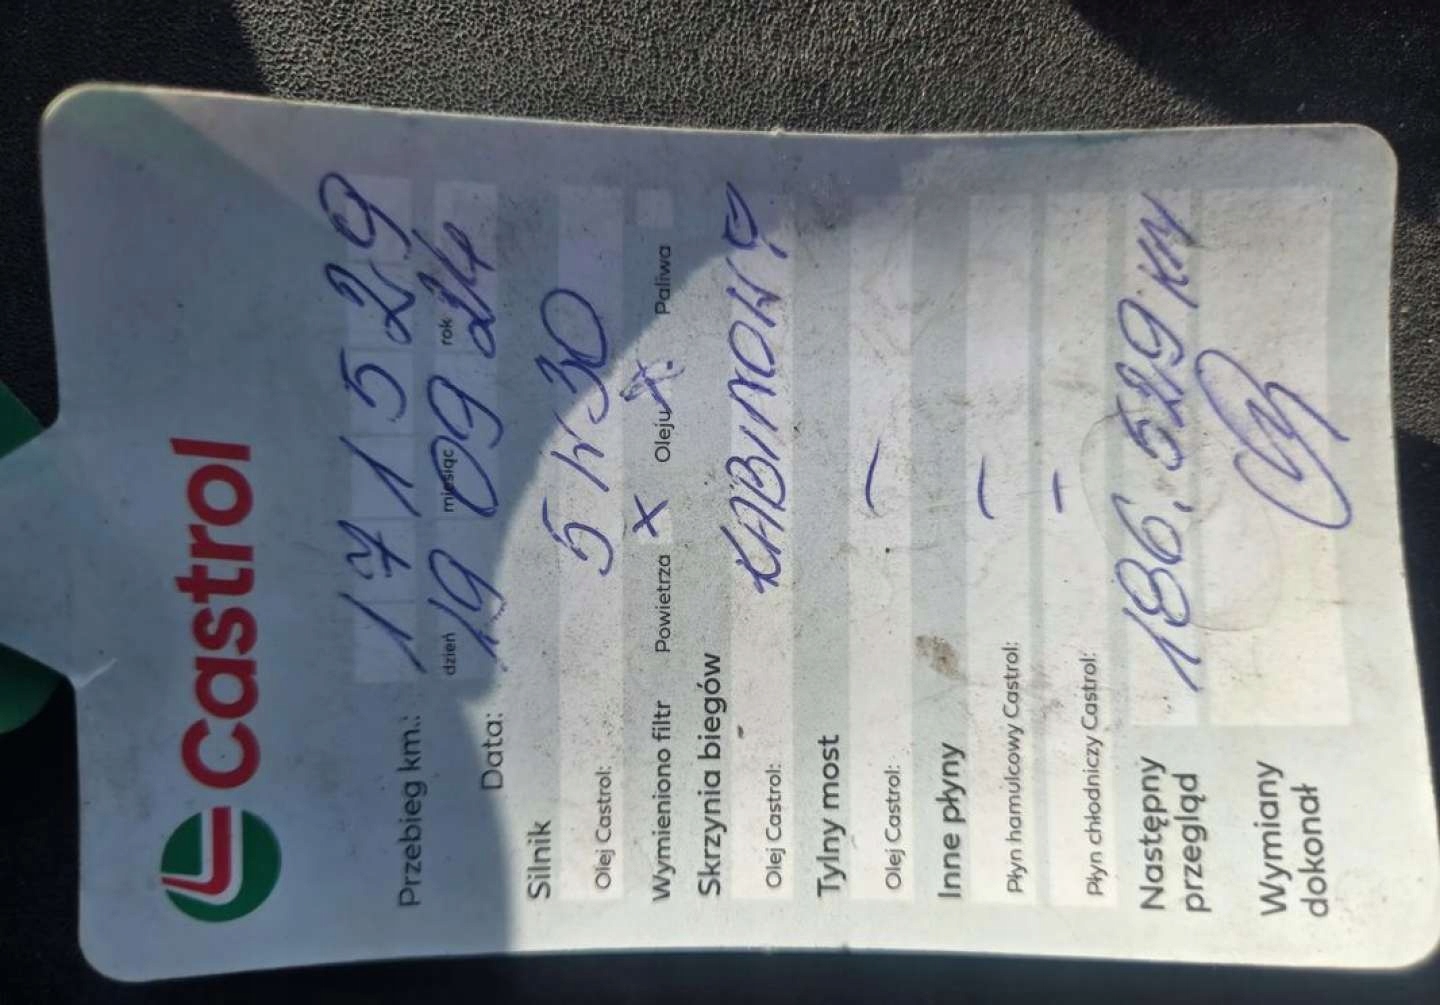 Castrol
Przebieg km.: 171529
dzień miesiąc rok
Data: 19 09 24
Silnik
Olej Castrol: 5W30
Wymieniono filtr Powietrza X Oleju X Paliwa
Skrzynia biegów
Olej Castrol: KABINOWY
Tylny most
Olej Castrol: –
Inne płyny
Płyn hamulcowy Castrol: –
Płyn chłodniczy Castrol: –
Następny
przegląd 186.529 KM
Wymiany
dokonał